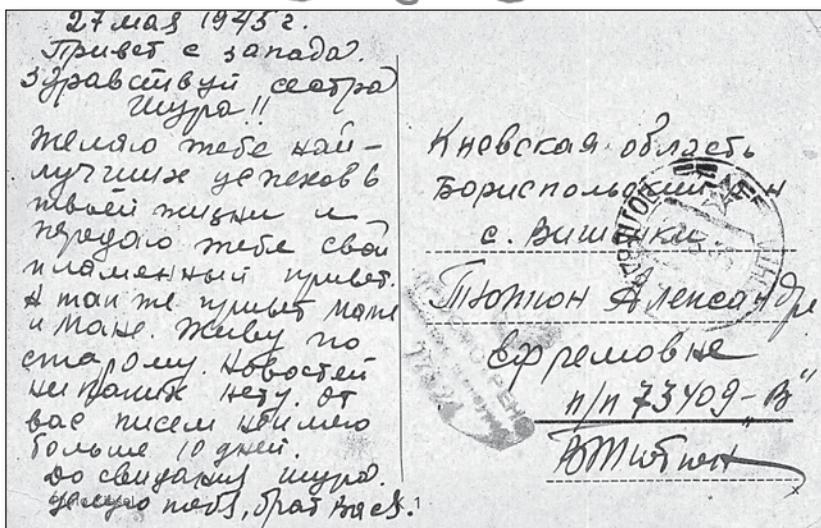 27 мая 1945 г.
Привет с запада.
Здравствуй сестра
Шура!!
Желаю тебе най-
лучших успехов в
твоей жизни и
передаю тебе свой
пламенный привет.
А так же привет маме
и Мане. Живу по
старому. Новостей
ни каких нету. От
вас писем неимею
больше 10 дней.
До свидания Шура.
Целую тебя, брат Вася.
1
Киевская область
Бориспольский
с. Вишенки
Тютюн Александре
Ефремовне
п/п 73409-„В“
ВТютюн